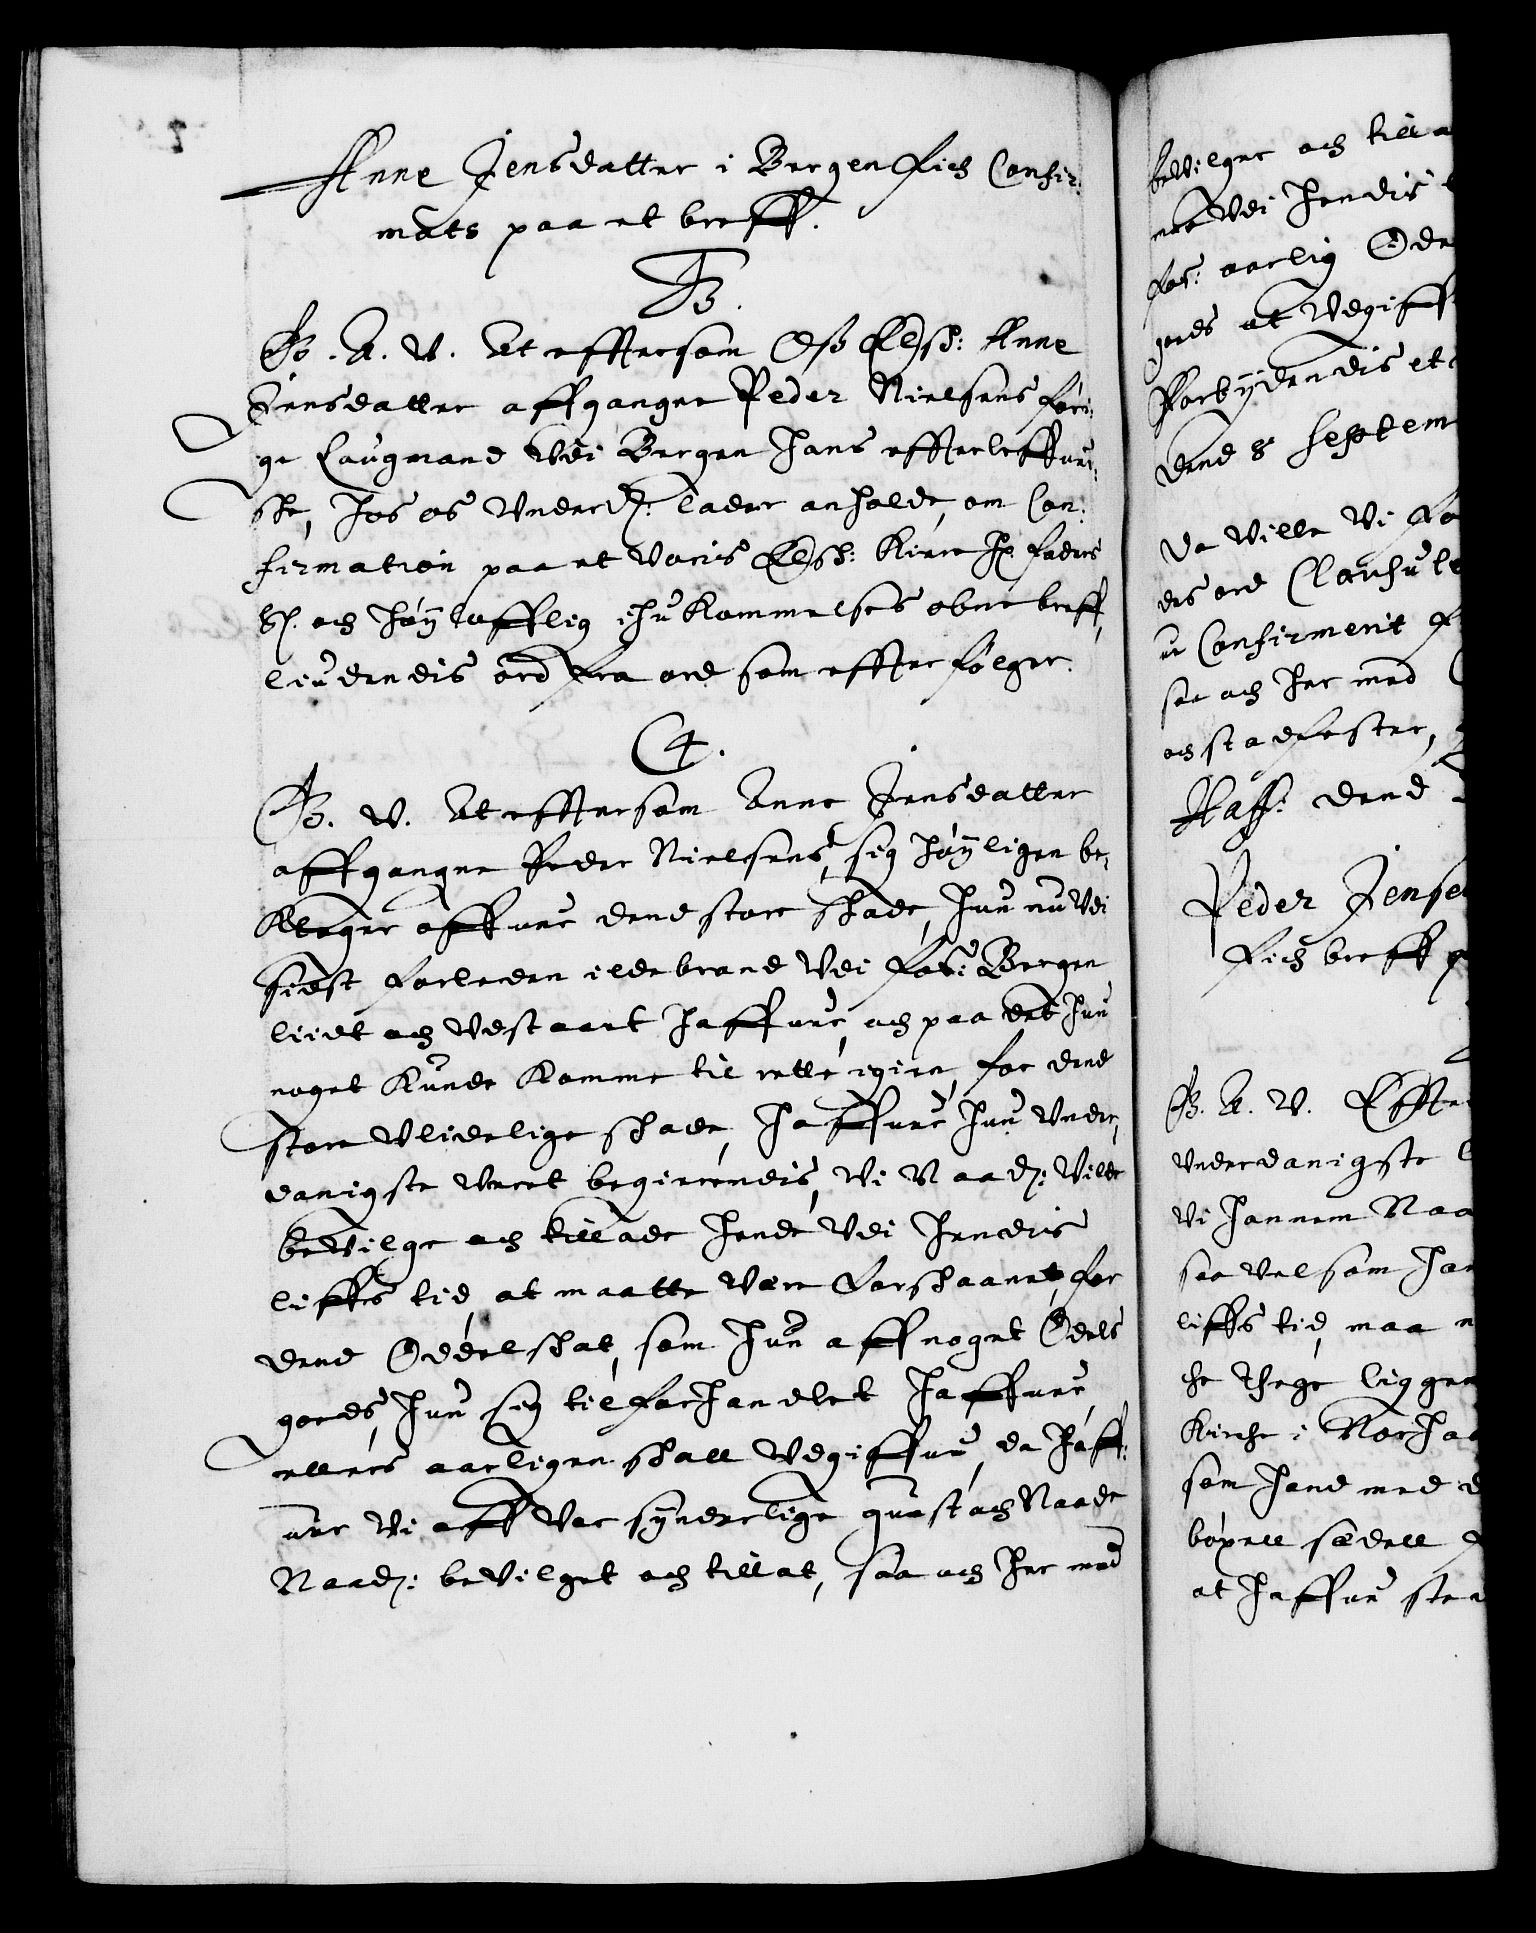 Anne Jensdatter i Bergen fich Confir:
mats paa et breff.
F3.
G. A. V. At efftersom Oss Elsch: Anne
Jensdatter affgangne Peder Nielsens fôri:
ge Laugmand Udi Bergen hans effterleffuer:
ske, hos os Underd: lader anholde, om Con:
firmation paa et voris Elsch: Kiere H. faders
S. och høylofflig ihukommelses obne breff,
liudendis ord fra ord som effterfølger.
C4.
G. V. At efftersom Anne Jensdatter
affgangne Peder Nielsens, sig høyligen be:
klager offuer dend store schade, hun nu Udi
sidst forleden ildebrand Udi for: Bergen
liidt och Udstaaet haffuer, och paa det hun
noget kunde komme til rette igien, for dend
store Ulidelige schade, haffuer hun Under,
danigste veret begierendis, Vi Naad: Ville
beVilge och tillade hende Udi hendis
liffs tid, at maatte være forschaanet, for
dend Oddelschat, som hun aff noget Odels
goeds, hun sig tilforhandlet haffuer,
ellers aarligen schall Udgiffue, da haff:
uer Vi aff Vor synderlige gunst och Naade
Naad: beVilget och tillat, saa och her med
beVilger och tilla
maa Udi hendis
for: aarlig Ode
goeds at Udgiff
Forbydendis etc
Dend 8 Septem
Da Ville Vi fo
des ord Clausule
ue Confirmerit
saa och her med
och stadfester,
Haff: Dend
Peder Jense
fich breff p
G. A. V. Effte
Underdanigste
Vi hannem Naa
saa Velsom han
liffs tid, maa n
che Thege liggen
Kirche i Norha
som hand med d
bøxell sædell
at haffue sted